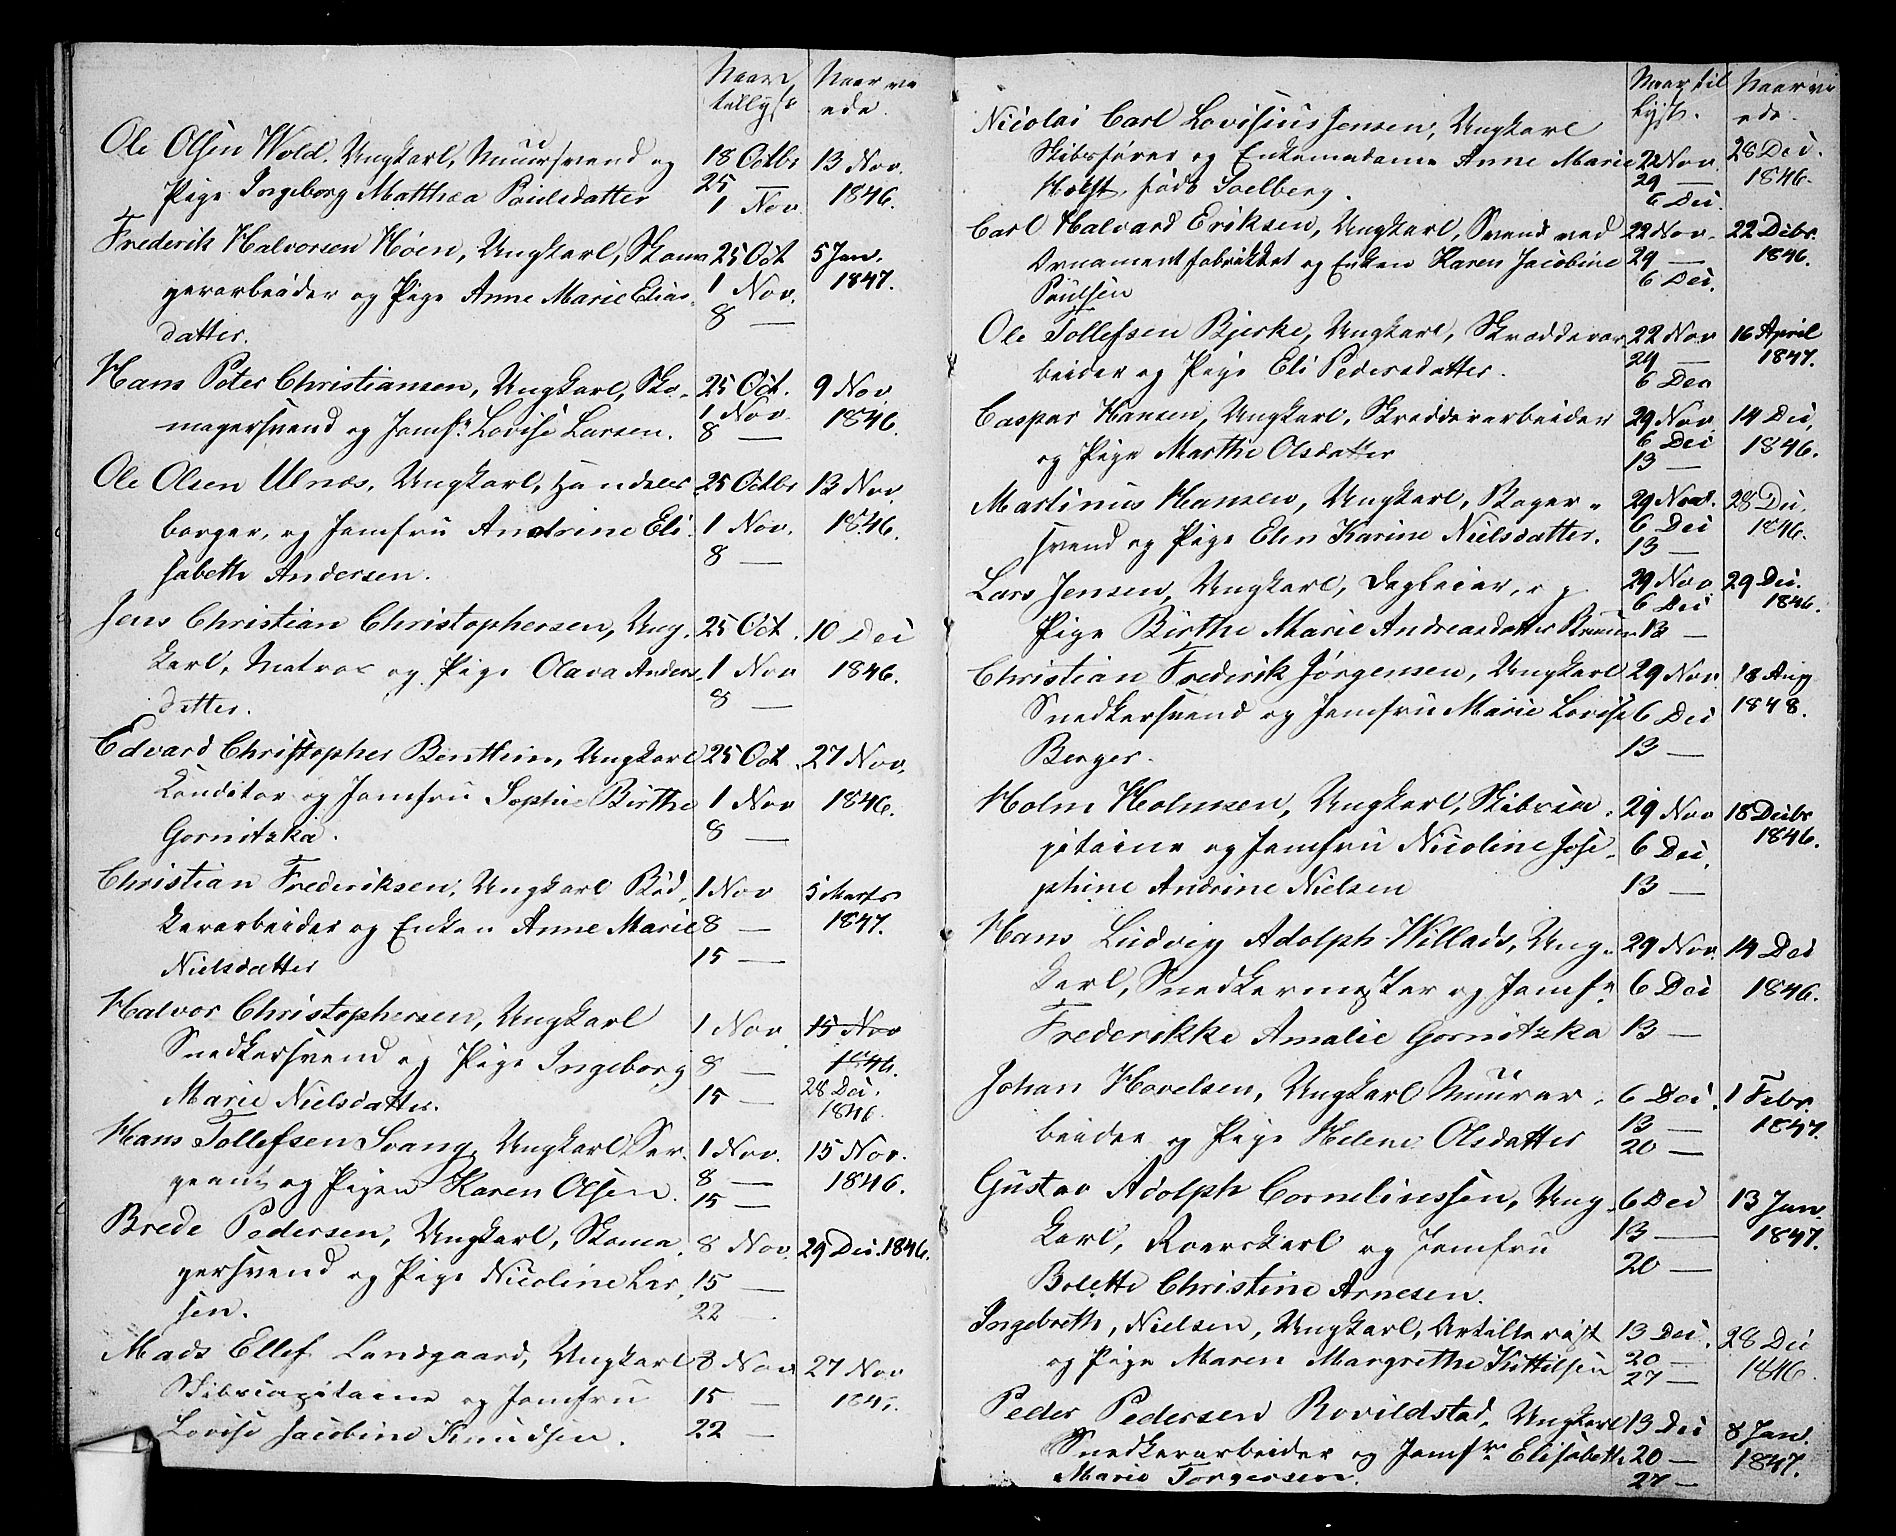 Naar tillyst Naar viede.
Ole Olsen Wold, Ungkarl, Muursvend og 18 Octbr 13 Nov.
Pige Ingeborg Matthea Poulsdatter 25 — 1846.
1 Nov.
Frederik Halvorsen Höen, Ungkarl, Skoma 25 Oct 5 Jan.
gerarbeider og Pige Anne Marie Elias- 1 Nov. 1847.
datter. 8 —
Hans Peter Christiansen, Ungkarl, Sko- 25 Oct. 9 Nov.
magersvend og Jomfr. Lovise Larsen. 1 Nov. 1846.
8 —
Ole Olsen Ulnæs, Ungkarl, Handels- 25 Octbr 13 Nov.
borger, og Jomfru Andrine Eli- 1 Nov. 1846.
sabeth Andersen. 8 —
Jens Christian Christophersen, Ung- 25 Oct. 10 Dec
karl, Matros og Pige Olava Anders- 1 Nov 1846.
datter. 8 —
Edvard Christopher Benthin, Ungkarl 25 Oct. 27 Nov.
Conditor og Jomfru Sophie Birthe 1 Nov 1846.
Gornitzka. 8 —
Christian Frederiksen, Ungkarl Bød- 1 Nov 5 Marts
kerarbeider og Enken Anne Marie 8 — 1847.
Nielsdatter 15 —
Halvor Christophersen, Ungkarl 1 Nov. 15 Nov
Snedkersvend og Pige Ingeborg 8 — 1846.
Marie Nielsdatter. 15 — 28 Dec. 1846.
Hans Tollefsen Svang, Ungkarl Ser- 1 Nov. 15 Nov.
geant og Pigen Karen Olsen. 8 — 1846.
15 —
Brede Pedersen, Ungkarl, Skoma- 8 Nov. 29 Dec. 1846.
gersvend og Pige Nicoline Lar- 15 —
sen. 22 —
Mads Ellef Landgaard, Ungkarl 8 Nov 27 Nov
Skibscapitaine og Jomfru 15 —
Lovise Jacobine Knudsen. 22 —
Naar til Lyst. Naar viede.
Nicolai Carl Lovisius Jensen, Ungkarl
Skibsfører og Enkemadame Anne Marie 22 Nov. 28 Dec.
Holst, født Soelberg. 29 — 1846.
6 Dec.
Carl Halvard Eriksen, Ungkarl, Svend ved 22 Nov. 22 Debr.
Ornamentfabrikket og Enken Karen Jacobine 29 — 1846.
Poulsen 6 Dec.
Ole Tollefsen Bjerke, Ungkarl, Skrædderar 22 Nov 16 April
beider og Pige Eli Pedersdatter. 29 — 1847.
6 Dec
Caspar Hansen, Ungkarl, Skredderarbeider 29 Nov. 14 Dec.
og Pige Marthe Olsdatter 6 Dec 1846.
13 —
Martinus Hansen, Ungkarl, Bager- 29 Nov. 28 Dec.
svend og Pige Elen Karine Nielsdatter. 6 Dec 1846.
13 —
Lars Jensen, Ungkarl, Dagleier, og 29 Nov. 29 Dec.
6 Dec 1846.
Pige Birthe Marie Andreasdatter 13 —
Christian Frederik Jørgensen, Ungkarl 29 Nov. 18 Aug
Snedkersvend og Jomfru Marie Lovise 6 Dec 1848.
Berger. 13 —
Holm Holmsen, Ungkarl, Skibsca- 29 Nov 18 Decbr
pitaine og Jomfru Nicoline Jose- 6 Dec. 1846.
phine Andrine Nielsen 13 —
Hans Ludvig Adolph Willads, Ung- 29 Nov. 14 Dec
karl, Snedkermester og Jomfr. 6 Dec 1846.
Frederikke Amalie Gornitzka 13 —
Johan Hovelsen, Ungkarl Muurar- 6 Dec. 1 Febr.
beider og Pige Helene Olsdatter 13 — 1847.
20 —
Gustav Adolph Corneliussen, Ung- 6 Dec 13 Jan.
karl, Roerskarl og Jomfru 13 — 1847.
Bolette Christine Arnesen. 20 —
Ingebreth, Nielsen, Ungkarl, Artillerist 13 Dec. 28 Dec
og Pige Maren Margrethe Kittilsen 20 — 1846.
27 —
Peder Pedersen Rovildstad, Ungkarl 13 Dec 8 Jan.
Snedkerarbeider og Jomfr. Elisabeth 20 — 1847.
Marie Torgersen. 27 —